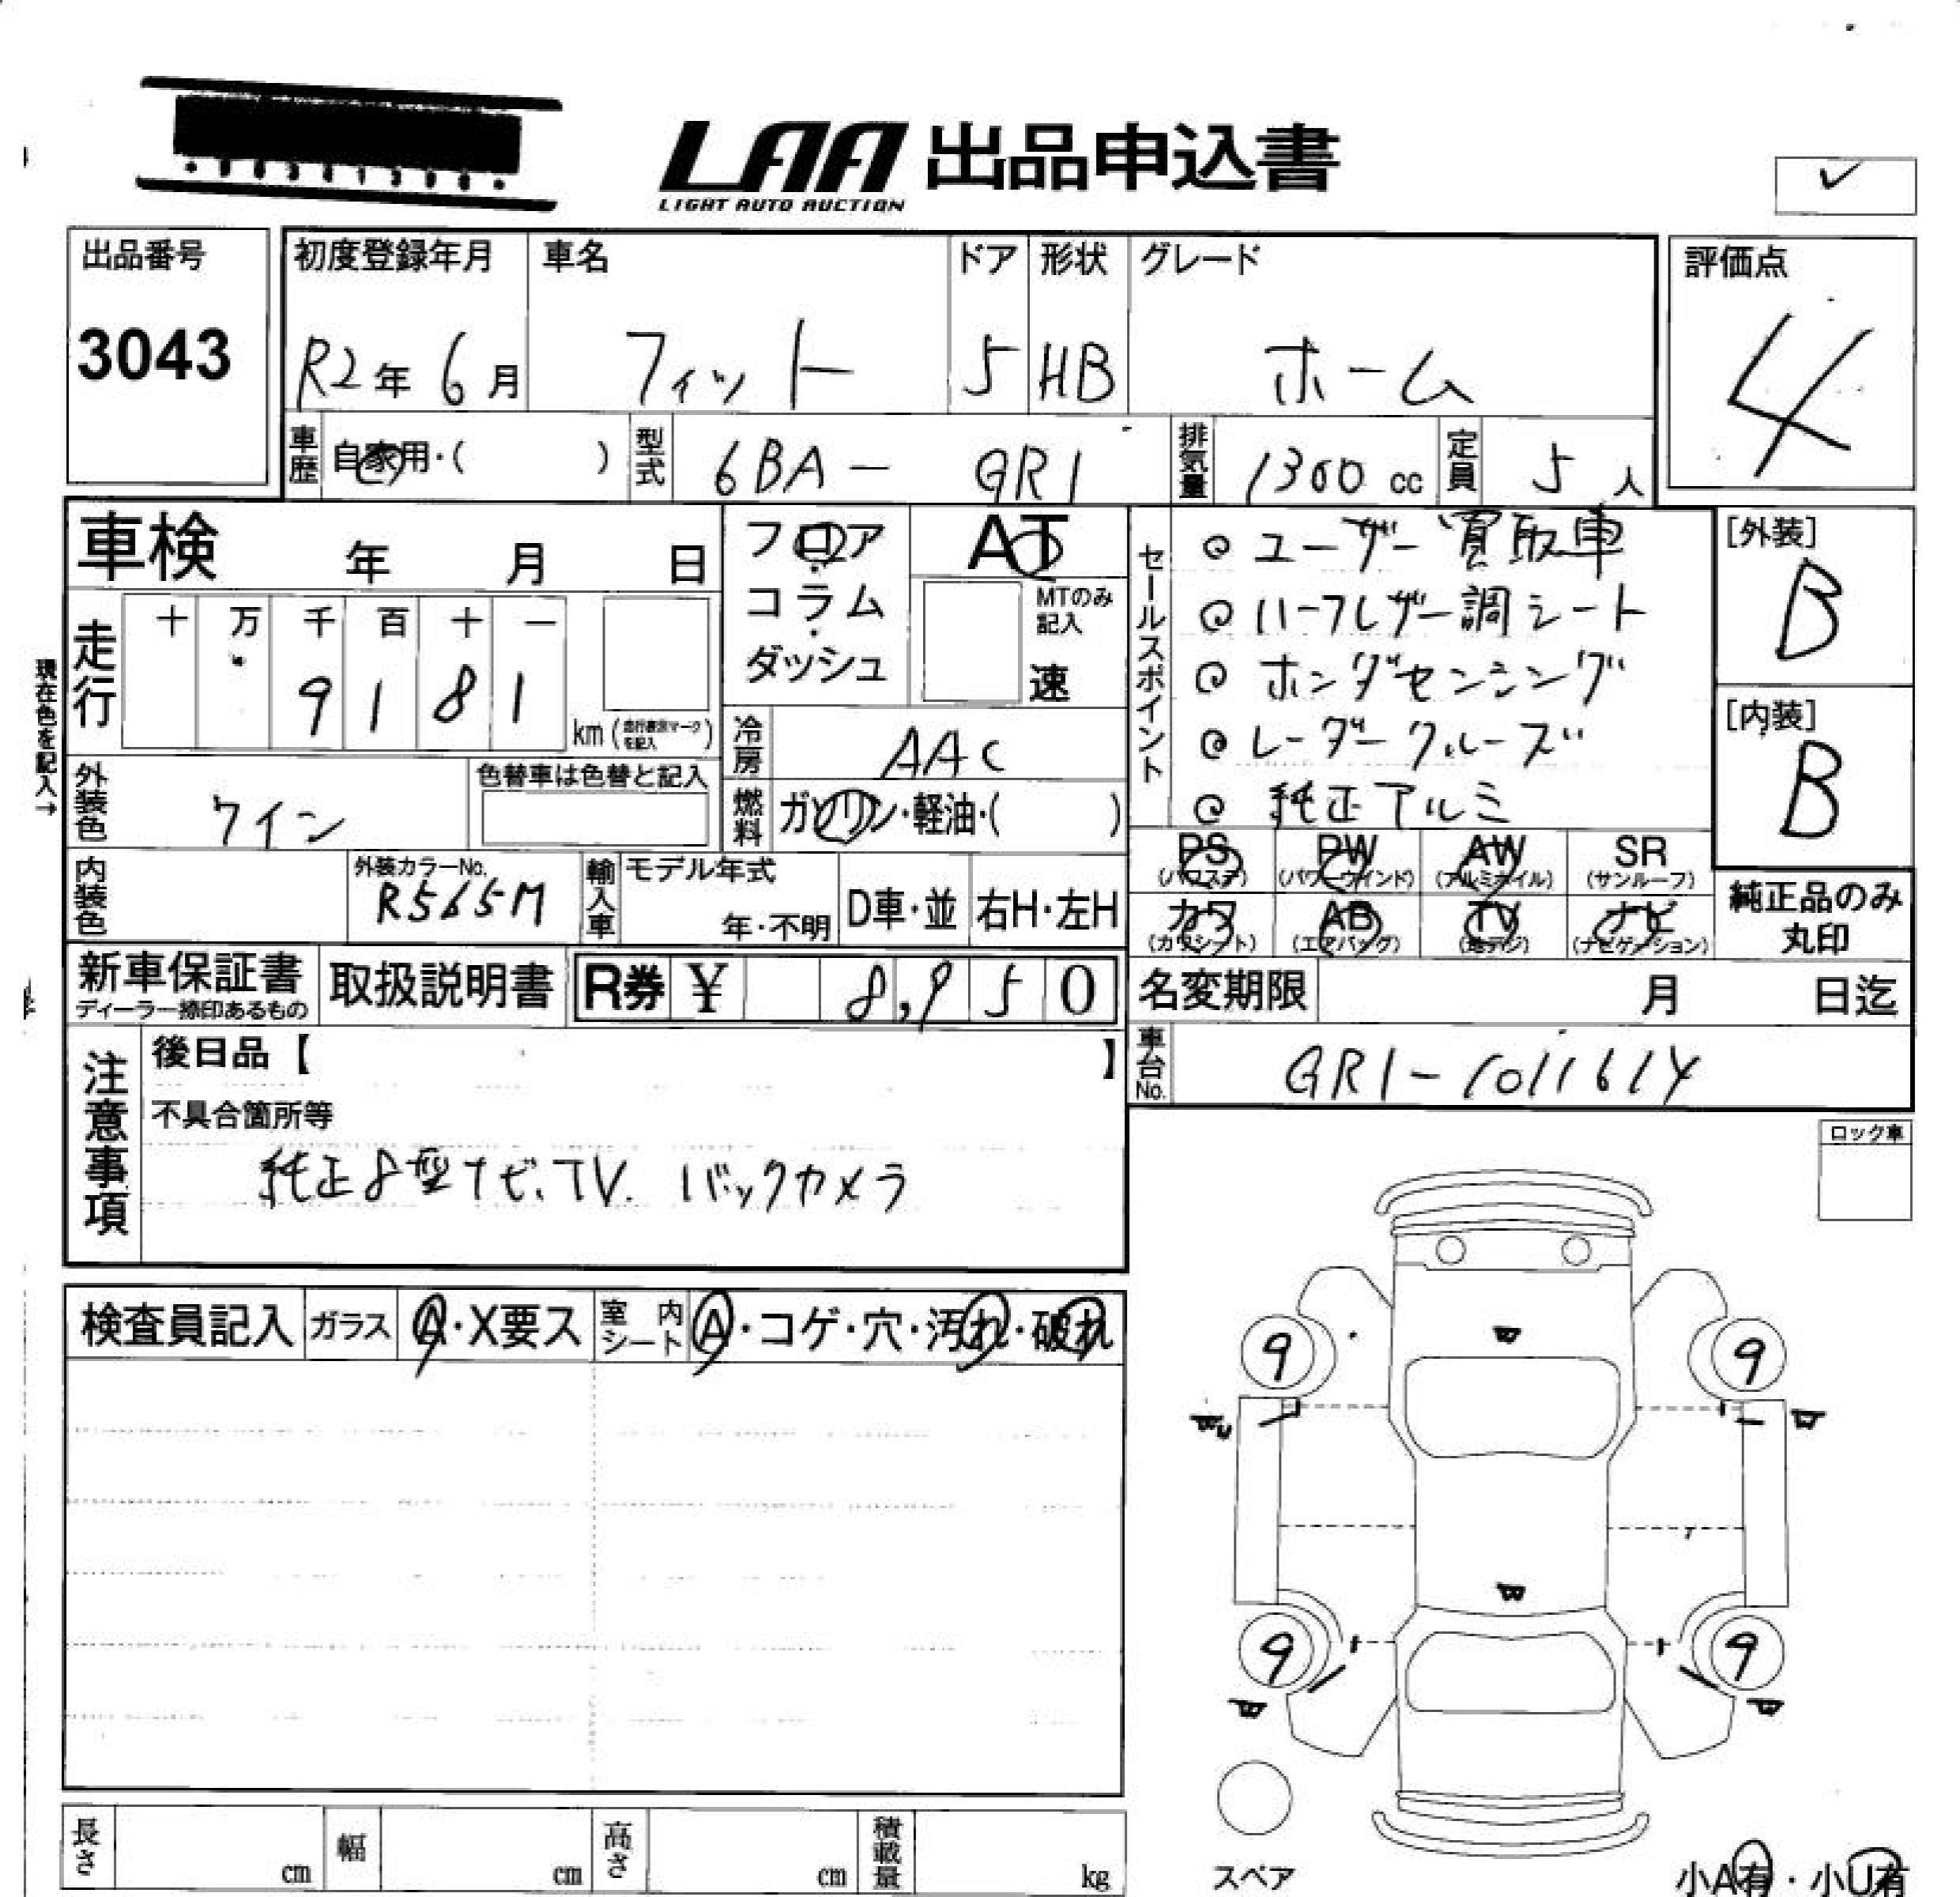 LAA 出品申込書
LIGHT AUTO AUCTION
出品番号
3043
初度登録年月
R2年 6月
車名
フィット
ドア
5
形状
HB
グレード
ホーム
評価点
4
車歴 自家用・( )
型式 6BA- GR1
排気量 1300 cc
定員 5 人
車検 年 月 日
フロア・コラム・ダッシュ
AT
MTのみ記入
速
走行 十 万 千 百 十 一
9 1 8 1
km (走行表示マークを記入)
現在色を記入→
冷房 AAC
燃料 ガソリン・軽油・( )
外装色 ワイン
色替車は色替と記入
内装色
外装カラーNo.
R565M
輸入車 モデル年式
年・不明
D車・並
右H・左H
セールスポイント
◎ ユーザー買取車
◎ ハーフレザー調シート
◎ ホンダセンシング
◎ レーダークルーズ
◎ 純正アルミ
[外装]
B
[内装]
B
PS (パワステ)
PW (パワーウインド)
AW (アルミホイル)
SR (サンルーフ)
カワ (カワシート)
AB (エアバッグ)
TV (地デジ)
ナビ (ナビゲーション)
純正品のみ
丸印
新車保証書
ディーラー捺印あるもの
取扱説明書
R券 ¥ 8,950
名変期限 月 日迄
車台No. GR1-1011614
注意事項
後日品【 】
不具合箇所等
純正8型ナビ、TV. バックカメラ
ロック車
検査員記入
ガラス A・X要ス
室内シート A・コゲ・穴・汚れ・破れ
W
9
9
W
W
9
9
W
W
スペア
小A有・小U有
長さ cm
幅 cm
高さ cm
積載量 kg